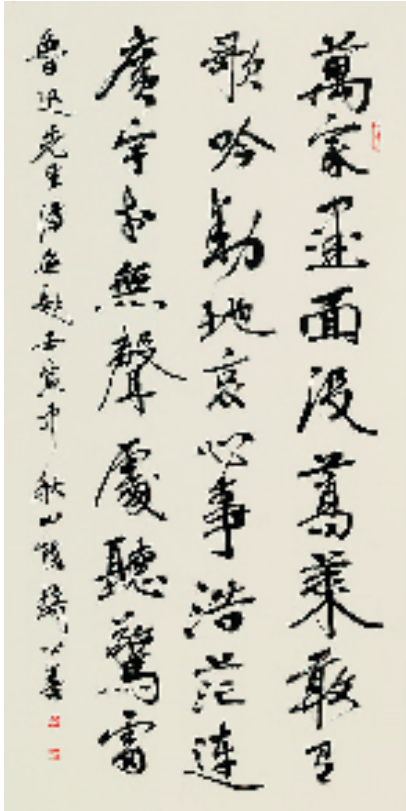 萬家墨面沒蒿萊敢有
歌吟動地哀心事浩茫連
廣宇於無聲處聽驚雷
魯迅先生詩無題壬寅中秋